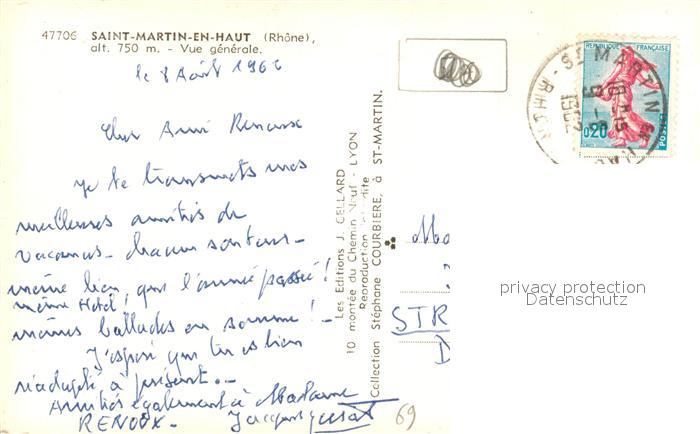 47706 SAINT-MARTIN-EN-HAUT (Rhône),
alt. 750 m. - Vue générale.
le 8 Août 196
Cher Ami Renoux
Je te transmets mes
meilleures amitiés de
vacances -
même lieu, que l'année passée !
même Hotel,
mêmes ballades en somme ! -
J'espère que tu es bien
réadapté à présent. -
Amitiés également à Madame
RENOUX -
69
Les Editions J. CELLARD
10 montée du Chemin Neuf - LYON
Reproduction interdite
Collection Stéphane COURBIERE, à ST-MARTIN.
REPUBLIQUE FRANÇAISE
0,20
POSTES
ST MARTIN
RHONE
STR
D
privacy protection
Datenschutz